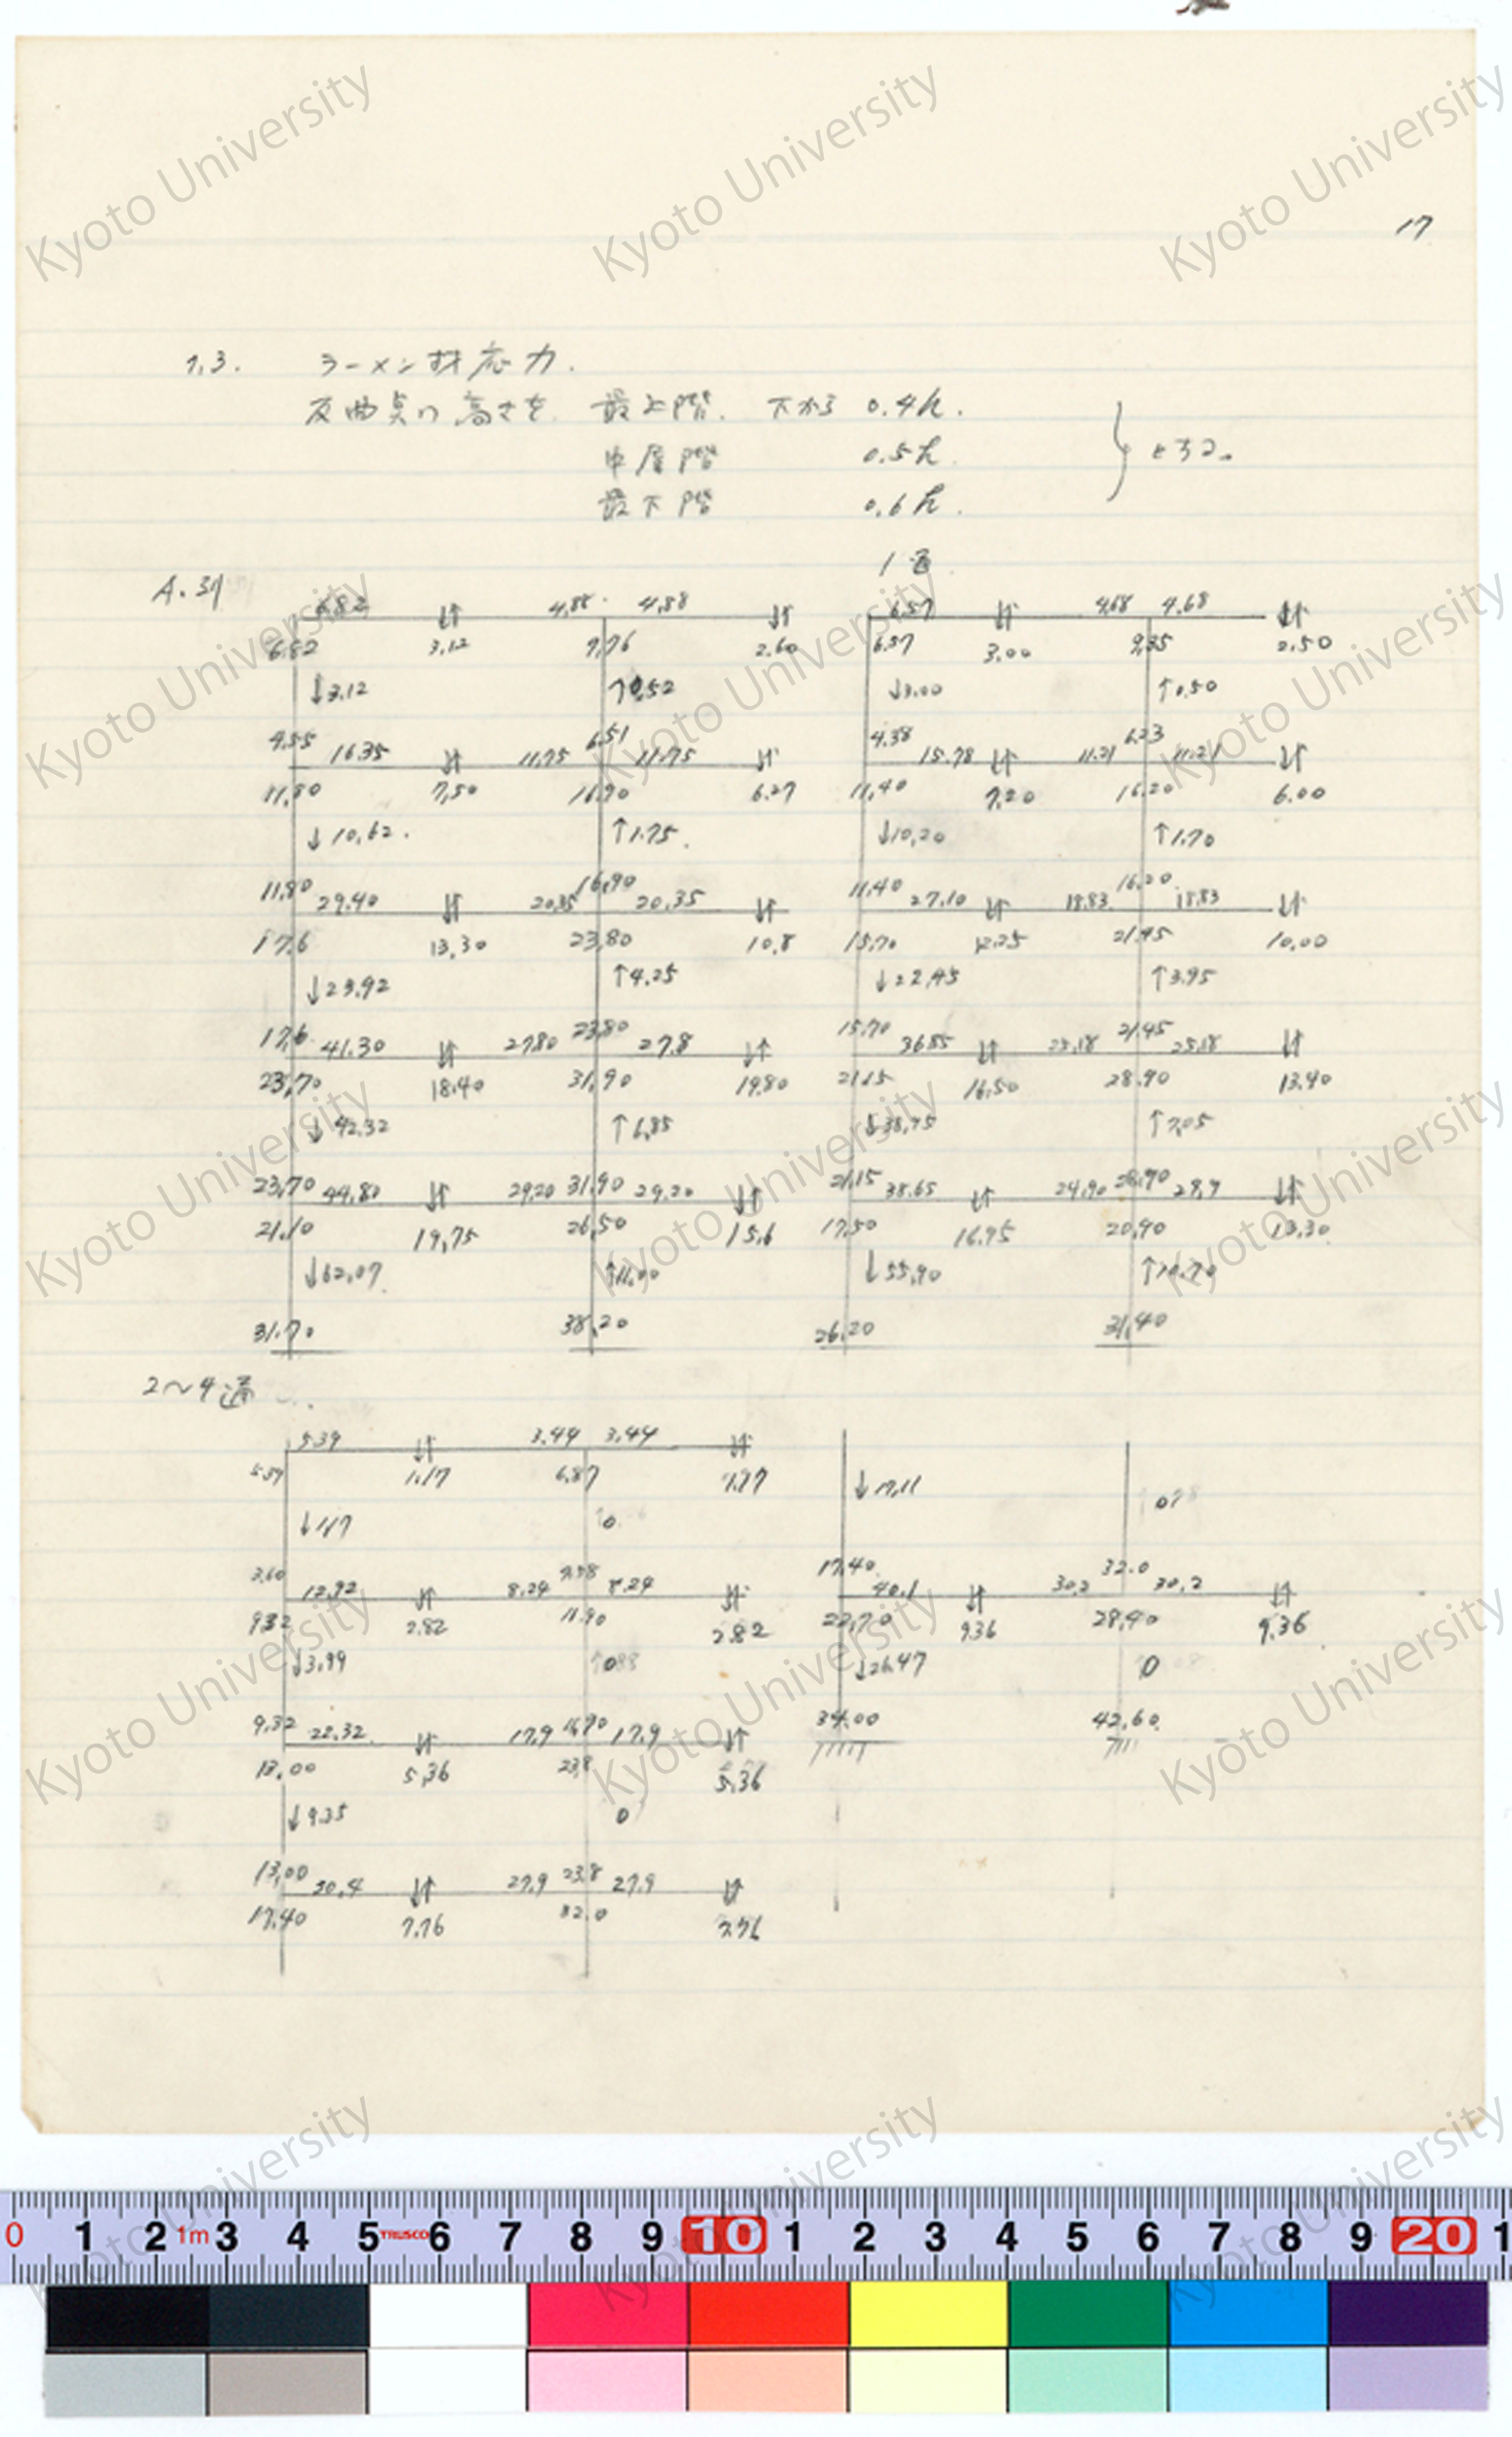 17
7.3. ラーメン材応力.
反曲点の高さを 最上階. 下から 0.4h.
中層階 0.5h.
最下階 0.6h.
とする。
A.列
1通
6.82 4.88 4.88
6.82 3.12 9.76 2.60
↓3.12 ↑0.52
4.55 16.35 11.75 6.51 11.75
11.80 7.50 16.90 6.27
↓10.62. ↑1.75.
11.80 29.40 20.35 16.90 20.35
17.6 13.30 23.80 10.8
↓23.92 ↑4.25
17.6 41.30 27.80 23.80 27.8
23.70 18.40 31.90 19.80
↓42.32 ↑6.85
23.70 44.80 29.20 31.90 29.20
21.10 19.75 26.50 15.6
↓62.07. ↑11.00
31.70 38.20
6.57 4.68 4.68
6.57 3.00 9.35 2.50
↓3.00 ↑0.50
4.38 15.78 11.21 6.23 11.21
11.40 7.20 16.20 6.00
↓10.20 ↑1.70
11.40 27.10 18.83 16.20 18.83
15.70 12.25 21.45 10.00
↓22.45 ↑3.95
15.70 36.85 25.18 21.45 25.18
21.15 16.50 28.90 13.40
↓38.95 ↑7.05
21.15 38.65 24.90 28.90 29.9
17.50 16.95 20.90 13.30
↓55.90 ↑10.70
26.20 31.40
2〜4通
5.39 3.44 3.44
5.39 1.17 6.87 1.17
↓1.17 0
3.60 12.92 8.24 8.24
9.32 2.82 11.90 2.82
↓3.99 0
9.32 22.32 17.9 17.9
13.00 5.36 23.8 5.36
↓9.35 0
13.00 30.4 27.9 23.8 27.9
17.40 7.76 32.0 7.76
↓17.11 0
17.40 40.1 30.2 32.0 30.2
22.70 9.36 28.40 9.36
↓26.47 0
34.00 42.60
Kyoto University
0 1 2 1m 3 4 5 TRUSCO 6 7 8 9 10 1 2 3 4 5 6 7 8 9 20 1